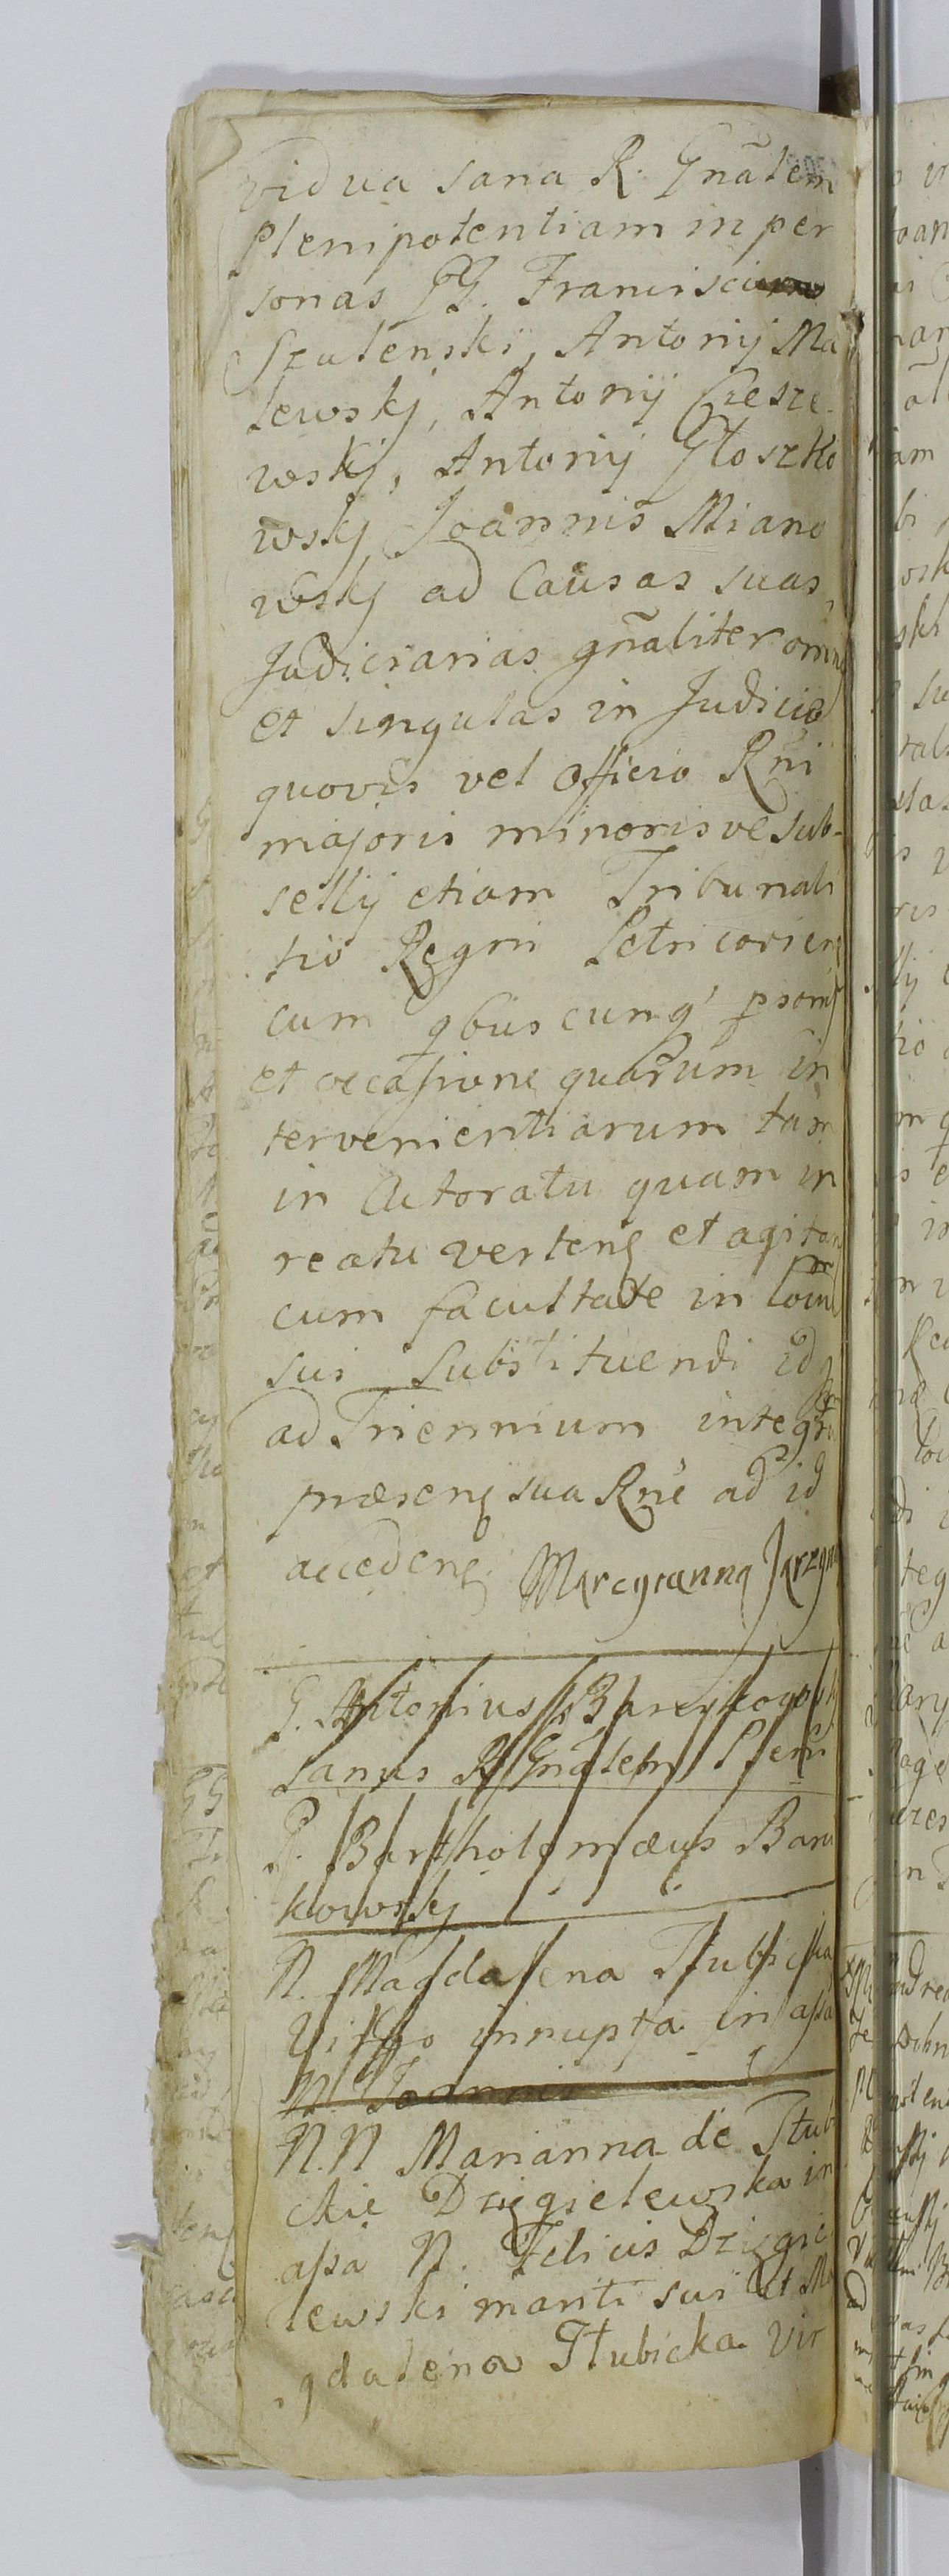 vidua sana R. Gnãlem
Plenipotentiam in per
sonas GG. Francisci
Szulenski, Antonij Ma
lewskj, Antonij Ciesze
wskj, Antonij Głoszko
wskj Joannis Miano
wskj ad Causas suas
Judiciarias gñaliter omnes
et singulas in Judicio
quovis vel officio Rñi
majoris minorisve sub-
sellij etiam Tribunali
tio Regni Petricovien
cum qbuscunq personis
et occasione quarum in
tervenientiarum tam
in Actoratu quam in
reatu verten et agitan
cum facultate in locum
sui Substituendi idq
ad Triennium integrum
præsen sua Rñe ad id
acceden Marcyanna
G. Antonius Bareykowski
sanus R. Gnãlem Pleni
P. Bartholomæus Bare
kowskj
N. Magdalena Słubicka
Virgo innupta in assã
N. Joannis
N.N Marianna de Słubi
ckie Dzięgielewska in
assã N. Felicis Dzięgie
lewski mariti sui et Ma
gdalena Słubicka Vir